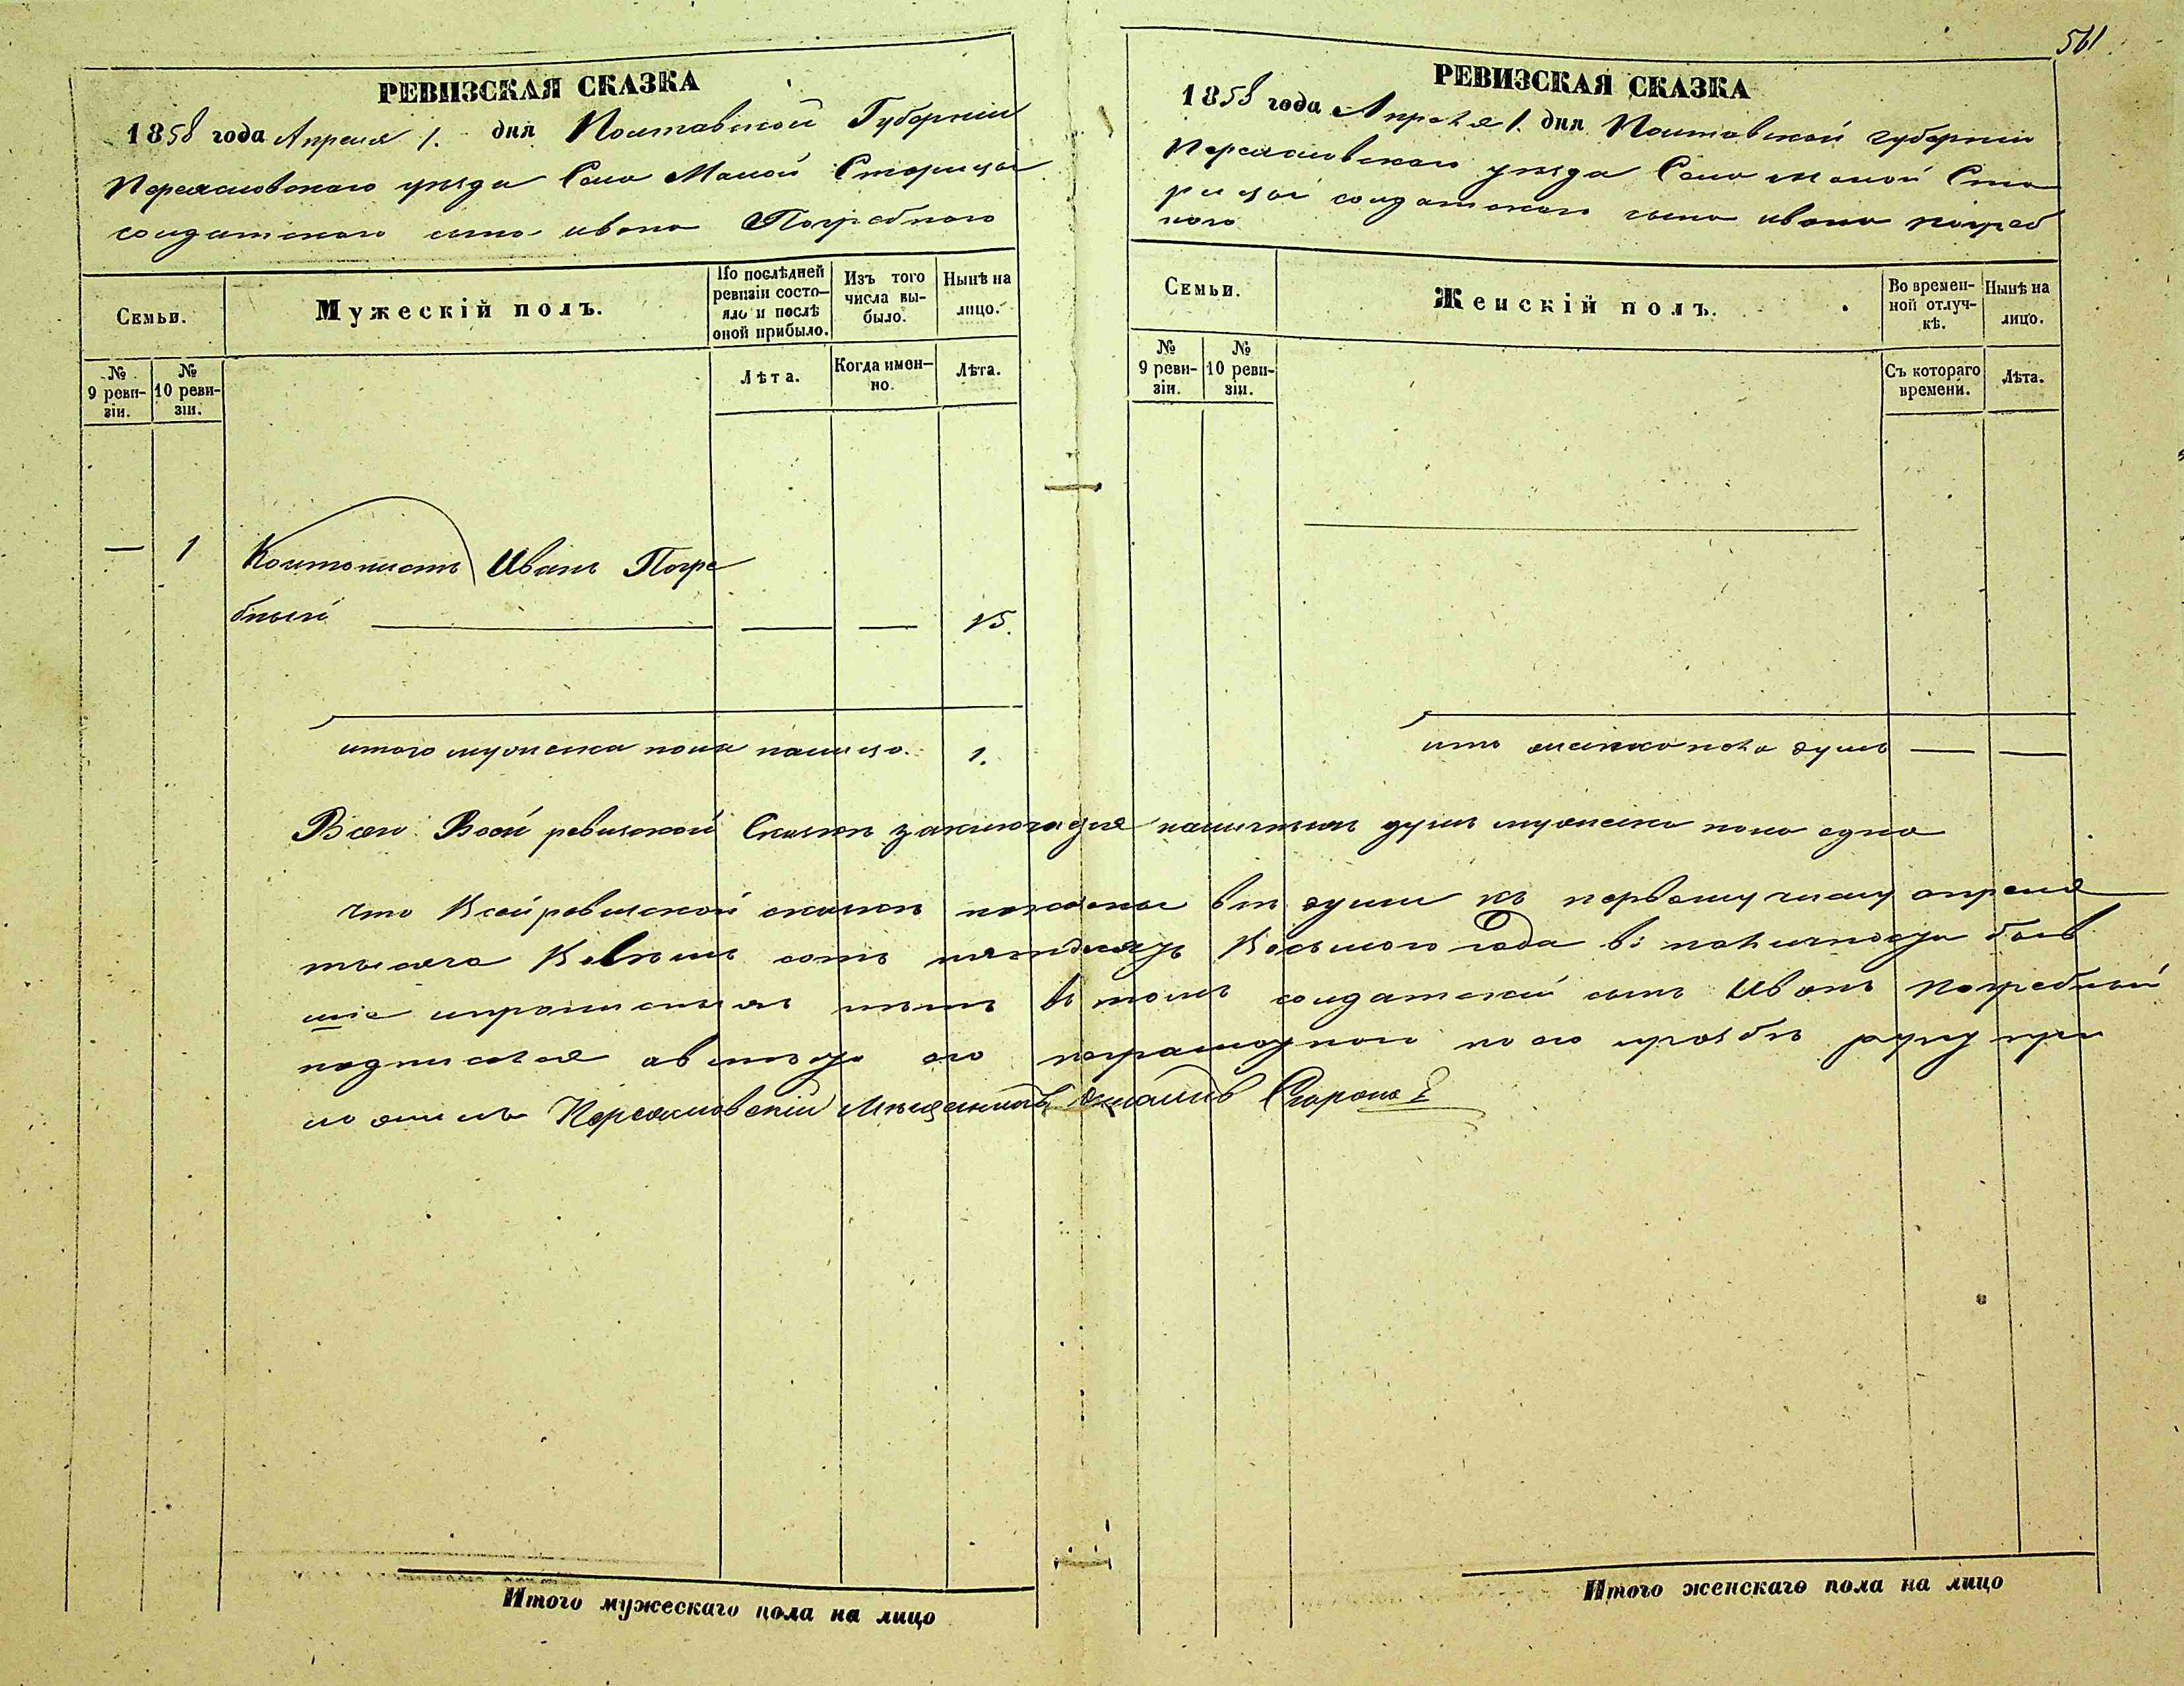 561
РЕВИЗСКАЯ СКАЗКА
1858 года Апреля 1. дня Полтавской Губернии
Переясловского уезда Села Малой Старицы
солдатского сына Ивана Погребного
Семьи.
Мужескій полъ.
По послѣдней ревизіи состо-
яло и послѣ оной прибыло.
Изъ того числа вы-
было.
Нынѣ на лицо.
№ 9 реви-
зіи.
№ 10 реви-
зіи.
Лѣта.
Когда имен-
но.
Лѣта.
— 1 Контонистъ Иванъ Погре
бный — — — 15.
итого мужеска пола налицо. 1.
РЕВИЗСКАЯ СКАЗКА
1858 года Апреля 1. дня Полтавской губернии
Переясловского уезда Села малой Ста
рицы солдатского сына ивана погреб
ного
Семьи.
Женскій полъ.
Во времен-
ной отлуч-
кѣ.
Нынѣ на лицо.
№ 9 реви-
зіи.
№ 10 реви-
зіи.
Съ котораго времени.
Лѣта.
женска пола душъ — —
Всего Всей ревизской Сказке наличныхъ душъ мужеска пола одна
Что Всей ревизской сказке показаны все души къ первому числу апреля
тысяча сотъ пятдесятъ Восьмого года в:
нетъ в томъ солдатский сынъ Иванъ Погребный
подписался а вместо его неграмотного по его прозбе руку при
ложилъ Переясловскій Мещанинъ
Итого мужескаго пола на лицо
Итого женскаго пола на лицо